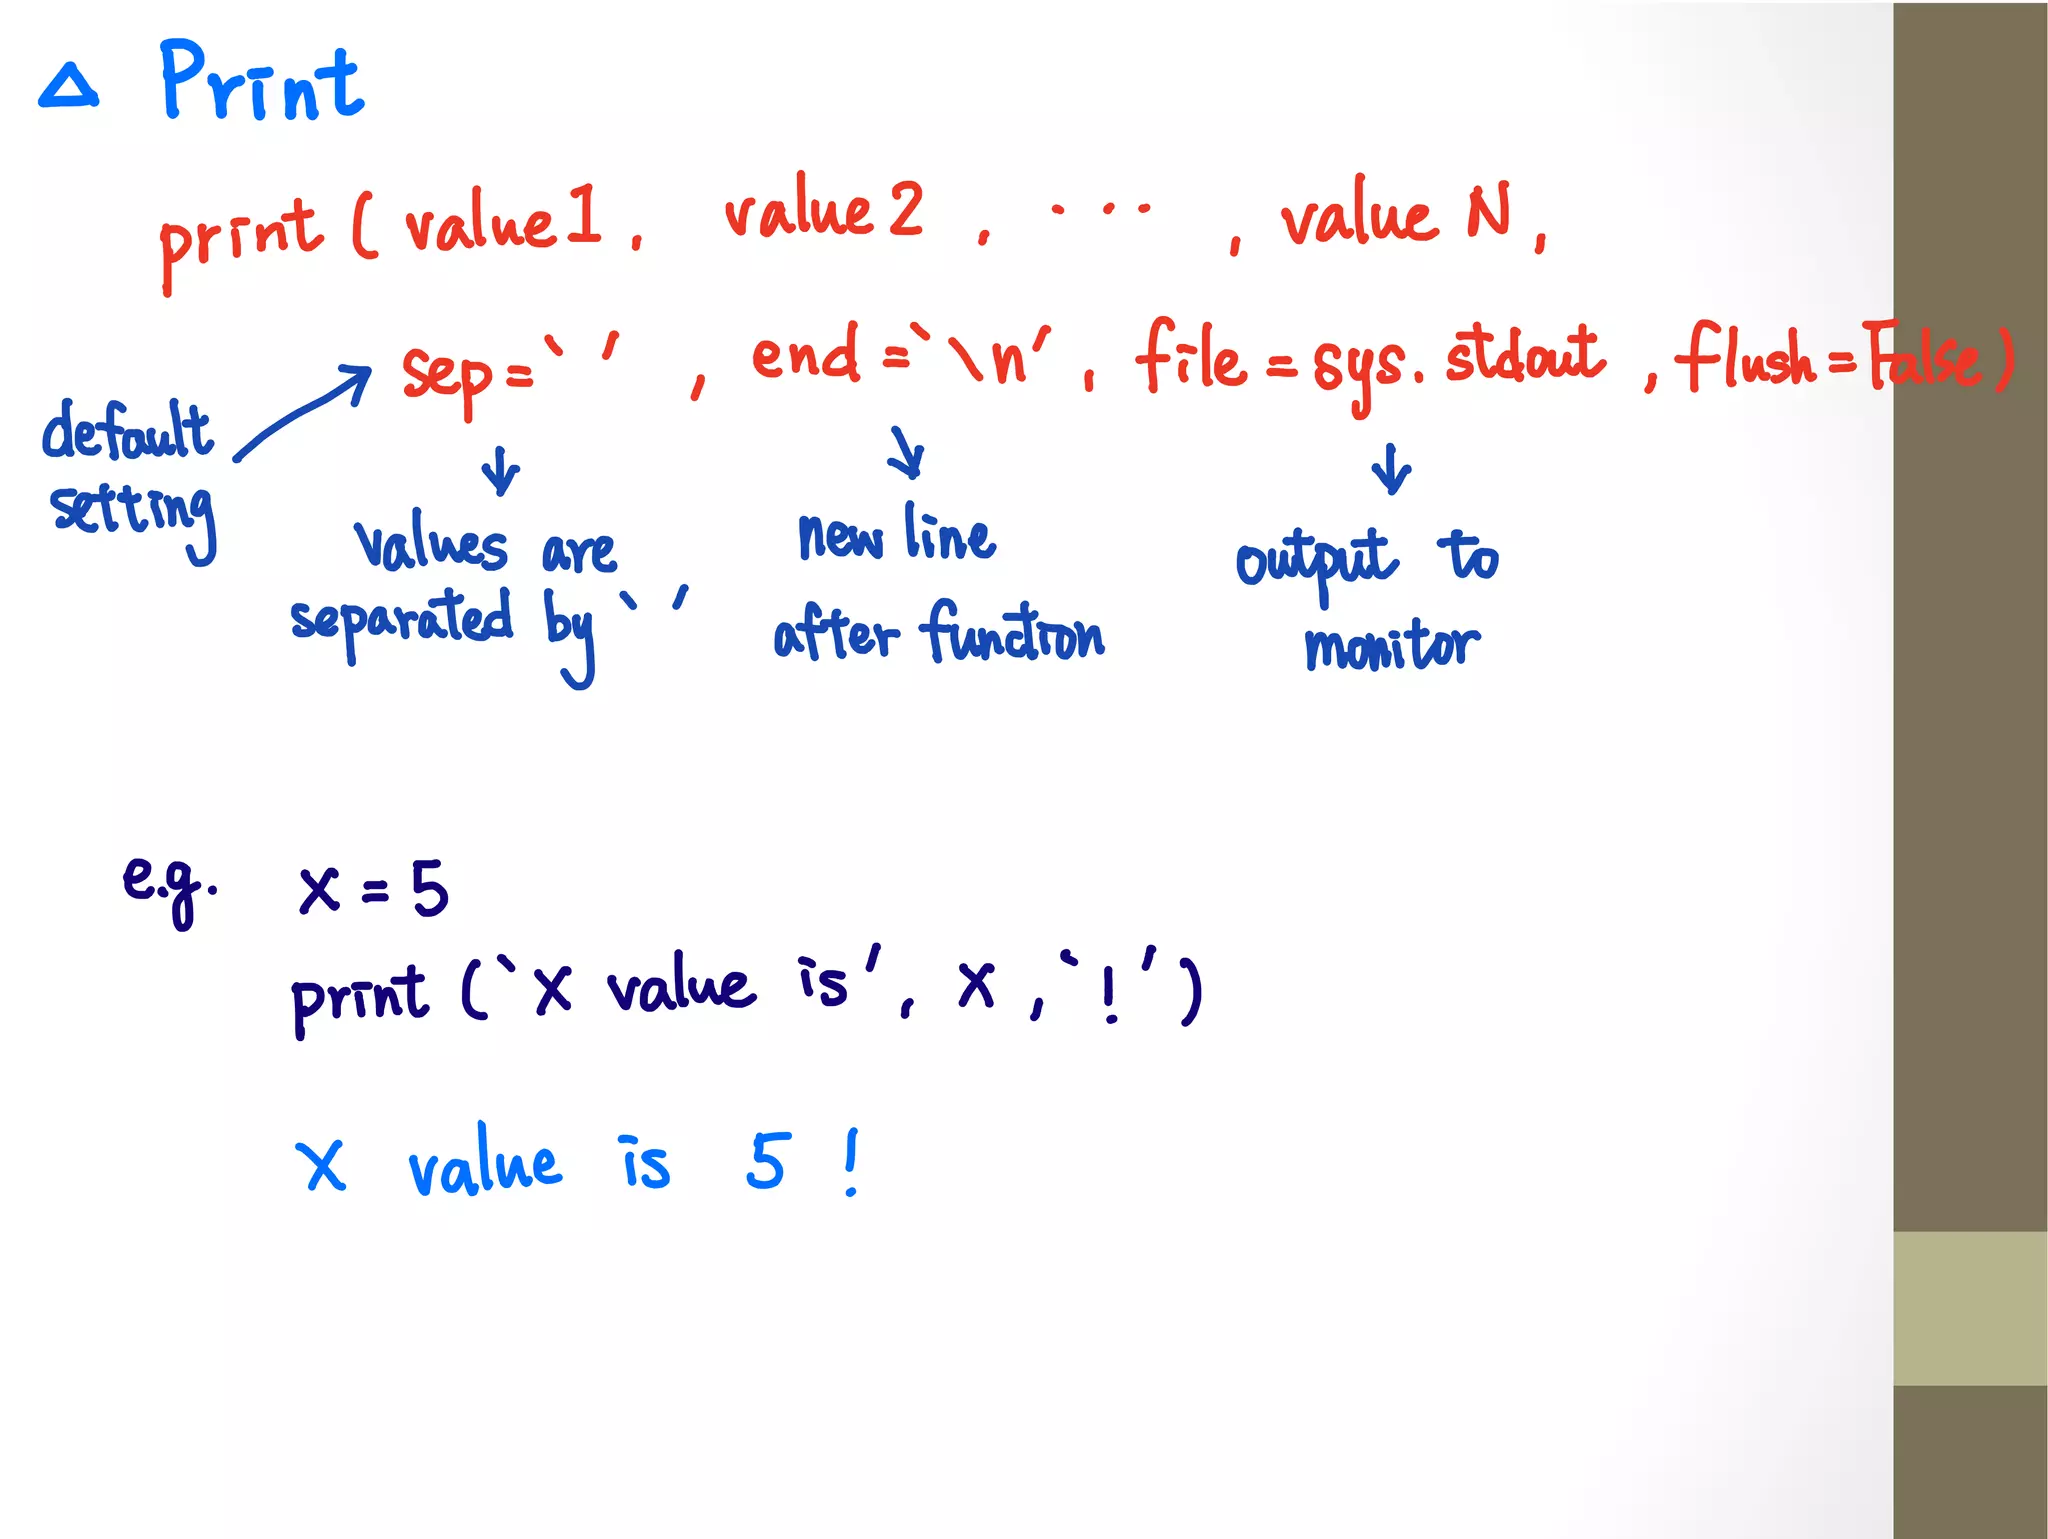 △ Print
print ( value1, value2, ..., value N,
sep=‵ ′, end=‵\n′, file=sys.stdout, flush=False)
default
setting
↓ ↓ ↓
values are
separated by ‵ ′
new line
after function
output to
monitor
e.g. X = 5
print (‵X value is′, X, ‵!′)
X value is 5 !